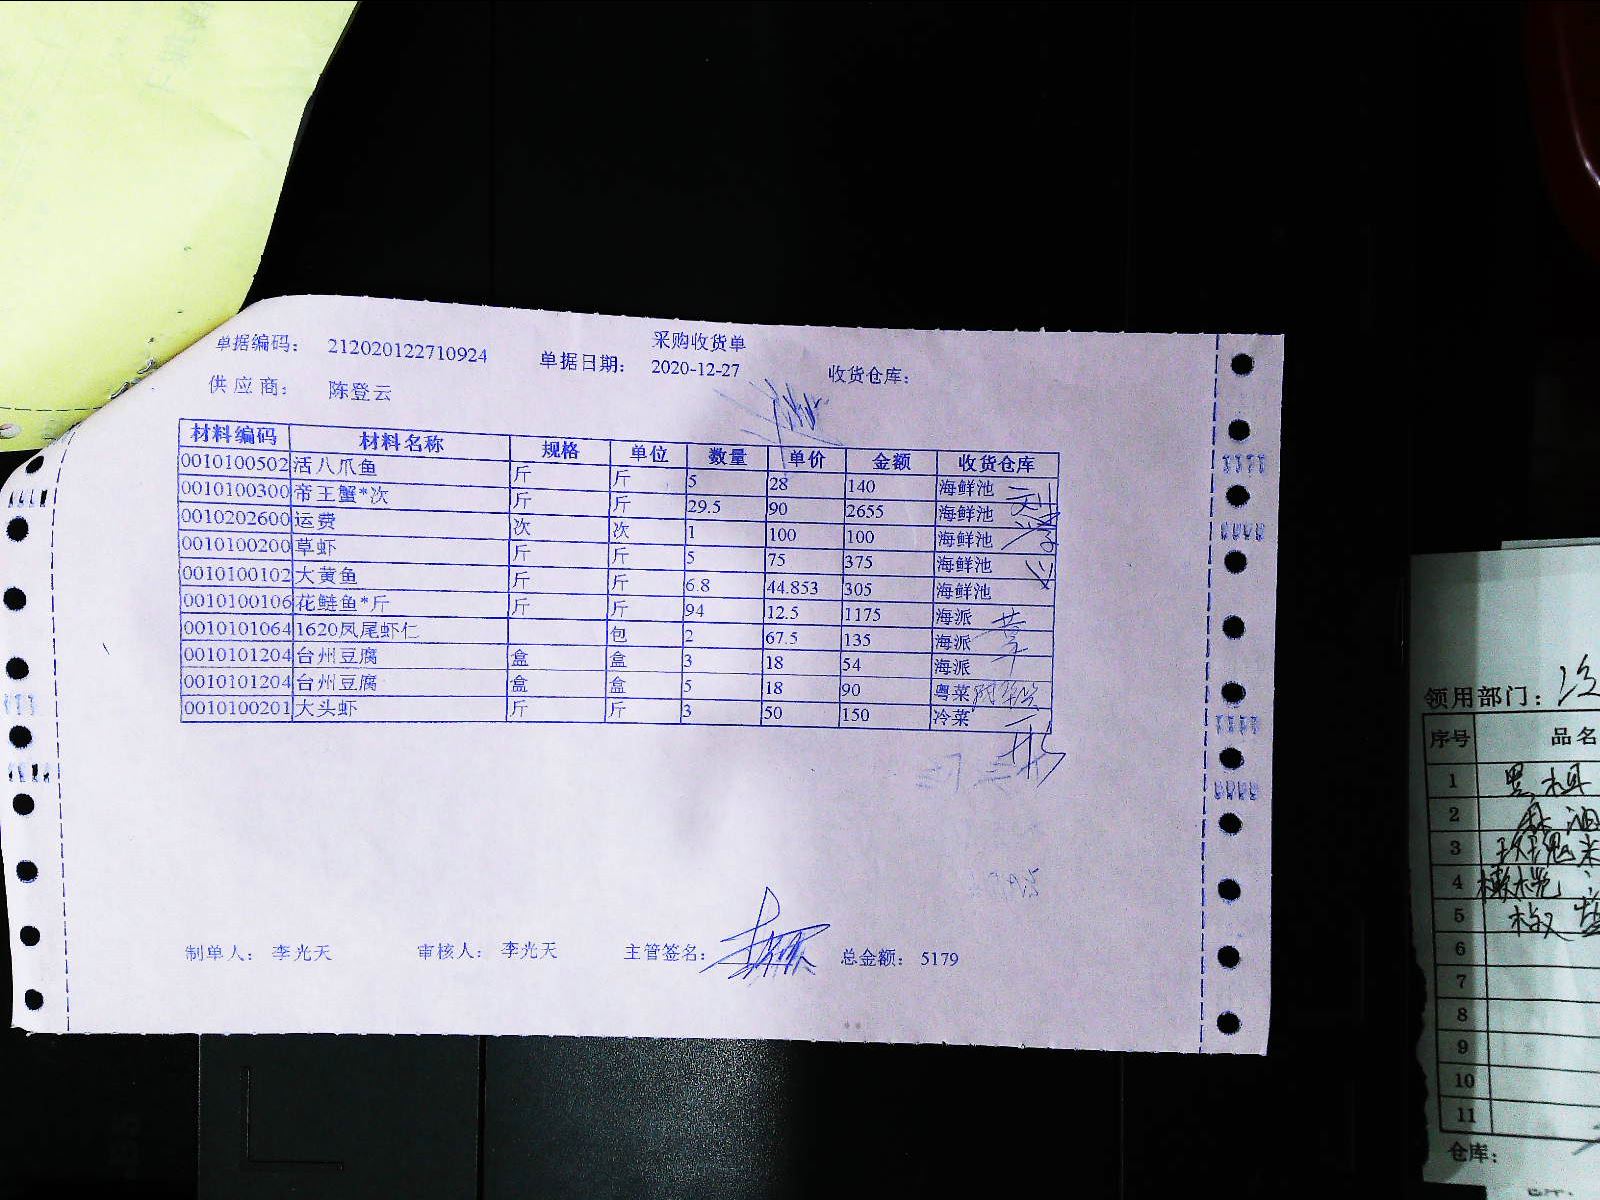 采购收货单
单据编码： 212020122710924 单据日期： 2020-12-27 收货仓库：
供应商： 陈登云
材料编码 材料名称 规格 单位 数量 单价 金额 收货仓库
0010100502 活八爪鱼 斤 斤 5 28 140 海鲜池
0010100300 帝王蟹*次 斤 斤 29.5 90 2655 海鲜池
0010202600 运费 次 次 1 100 100 海鲜池
0010100200 草虾 斤 斤 5 75 375 海鲜池
0010100102 大黄鱼 斤 斤 6.8 44.853 305 海鲜池
0010100106 花鲢鱼*斤 斤 斤 94 12.5 1175 海派
0010101064 1620凤尾虾仁 包 2 67.5 135 海派
0010101204 台州豆腐 盒 盒 3 18 54 海派
0010101204 台州豆腐 盒 盒 5 18 90 粤菜
0010100201 大头虾 斤 斤 3 50 150 冷菜
制单人： 李光天 审核人： 李光天 主管签名： 总金额： 5179
领用部门：
序号 品名
1 黑椒
2 麻油
3 玫瑰米
4 橄榄
5 椒盐
6
7
8
9
10
11
仓库：